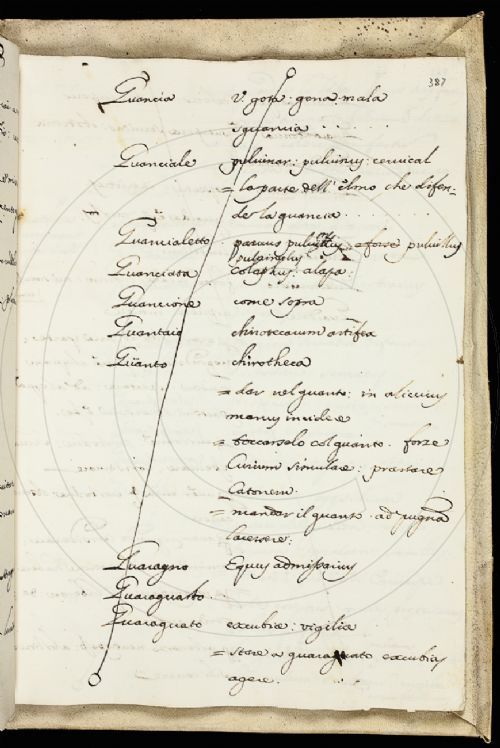 387
Guancia v. gota: gena: mala
sguancia
Guanciale pulvinar: pulvinus: cervical
= la parte dell' elmo che difen=
de la guancia
Guancialetto parvus pulvillus: forse pulvillus
Guanciata colaphus: alapa:
Guancione come sopra
Guantaio chirotecarum artifex
Guanto chirotheca
= dar nel guanto: in alicuius
manus incidere
= toccarselo col guanto. forse
Curium simulare: prestare
Catonem.
= mandar il guanto. ad pugnã
lacessere:
Guaragno Equus admissarius
Guaraguasto.
Guaraguato excubiæ: vigiliæ
= stare a guaraguato excubias
agere.